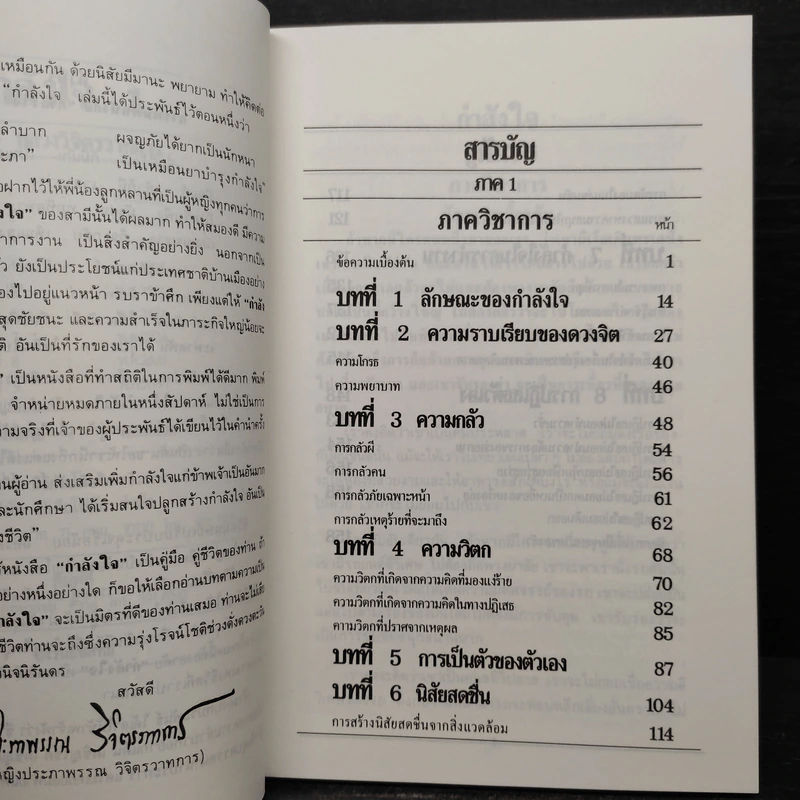 เหมือนกัน ด้วยนิสัยมีมานะ พยายาม ทำให้คิดต่อ
"กำลังใจ เล่มนี้ได้ประพันธ์ไว้ตอนหนึ่งว่า
ลำบาก ผจญภัยได้ยากเป็นนักหนา
เป็นเหมือนยาบำรุงกำลังใจ"
ฝากไว้ให้พี่น้องลูกหลานที่เป็นผู้หญิงทุกคนว่าการ
ของสามีนั้นได้ผลมาก ทำให้สมองดี มีความ
การงาน เป็นสิ่งสำคัญอย่างยิ่ง นอกจากเป็น
ยังเป็นประโยชน์แก่ประเทศชาติบ้านเมืองอย่าง
องไปอยู่แนวหน้า รบราข้าศึก เพียงแต่ให้ "กำลัง
สุดชัยชนะ และความสำเร็จในภาระกิจใหญ่น้อยจะ
ติ อันเป็นที่รักของเราได้
เป็นหนังสือที่ทำสถิติในการพิมพ์ได้ดีมาก พิมพ์
จำหน่ายหมดภายในหนึ่งสัปดาห์ ไม่ใช่เป็นการ
ามจริงที่เจ้าของผู้ประพันธ์ได้เขียนไว้ในคำนำครั้ง
านผู้อ่าน ส่งเสริมเพิ่มกำลังใจแก่ข้าพเจ้าเป็นอันมาก
ละนักศึกษา ได้เริ่มสนใจปลูกสร้างกำลังใจ อันเป็น
งชีวิต"
หนังสือ "กำลังใจ" เป็นคู่มือ คู่ชีวิตของท่าน ถ้า
อย่างหนึ่งอย่างใด ก็ขอให้เลือกอ่านบทตามความเป็น
กำลังใจ" จะเป็นมิตรที่ดีของท่านเสมอ ท่านจะไม่เสีย
ชีวิตท่านจะถึงซึ่งความรุ่งโรจน์โชติช่วงดั่งดวงตะวัน
นิจนิรันดร
สวัสดี
หญิงประภาพรรณ วิจิตรวาทการ)
สารบัญ
ภาค 1
ภาควิชาการ หน้า
ข้อความเบื้องต้น 1
บทที่ 1 ลักษณะของกำลังใจ 14
บทที่ 2 ความราบเรียบของดวงจิต 27
ความโกรธ 40
ความพยาบาท 46
บทที่ 3 ความกลัว 48
การกลัวผี 54
การกลัวคน 56
การกลัวภัยเฉพาะหน้า 61
การกลัวเหตุร้ายที่จะมาถึง 62
บทที่ 4 ความวิตก 68
ความวิตกที่เกิดจากความคิดที่มองแง่ร้าย 70
ความวิตกที่เกิดจากความคิดในทางปฏิเสธ 82
ความวิตกที่ปราศจากเหตุผล 85
บทที่ 5 การเป็นตัวของตัวเอง 87
บทที่ 6 นิสัยสดชื่น 104
การสร้างนิสัยสดชื่นจากสิ่งแวดล้อม 114